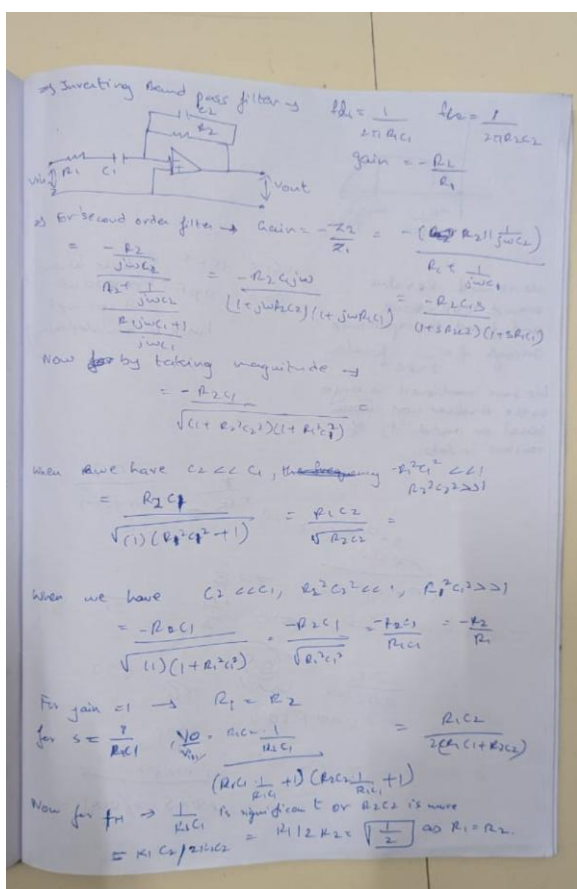 => Inverting Band pass filter → fL1 = 1/(2πR1C1) fL2 = 1/(2πR2C2)
C2
R2
gain = -R2/R1
Vin R1 C1
Vout
=> For second order filter → Gain = -Z2/Z1 = -(R2 || 1/jωC2) / (R1 + 1/jωC1)
= (-R2/jωC2) / (R2 + 1/jωC2) / ((R1jωC1+1)/jωC1) = -R2C1jω / ((1+jωR2C2)(1+jωR1C1)) = -R2C1s / ((1+sR2C2)(1+sR1C1))
Now by taking magnitude →
= -R2C1 / √((1+R2²C2²)(1+R1²C1²)) =
When we have C2 << C1, -R1²C1² << 1
R2²C2² >> 1
= R2C1 / √((1)(R1²C1²+1)) = R1C2 / √R2C2 =
When we have C2 <<C1, R2²C2² << 1, R1²C1² >> 1
= -R2C1 / √((1)(1+R1²C1²)) = -R2C1 / √(R1²C1²) = -R2C1/R1C1 = -R2/R1
For gain = 1 → R1 = R2
for s = 1/R1C1, Vo/Vin = R1C2 · 1/R2C1 / ((R1C1 1/R1C1 + 1)(R2C2 1/R1C1 + 1)) = R1C2 / 2(R1C1+R2C2)
Now for fH => 1/R1C1 is significant or R2C2 is more
= R1C2/2R1C2 = R1/2R2 = √(1/2) as R1 = R2.